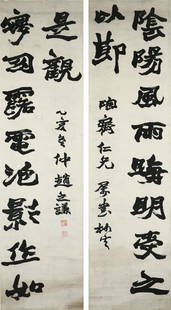 陰陽風雨晦明受之
以節
仁兄屬書
夢幻露電泡影作如
是觀
乙亥冬仲趙之謙